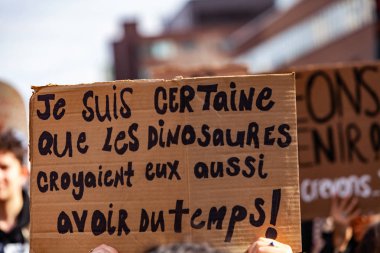 JE SUIS CERTAINE
QUE LES DINOSAURES
CROYAIENT EUX AUSSI
AVOIR DU TEMPS!
ONS
ENIR
CRAYONS